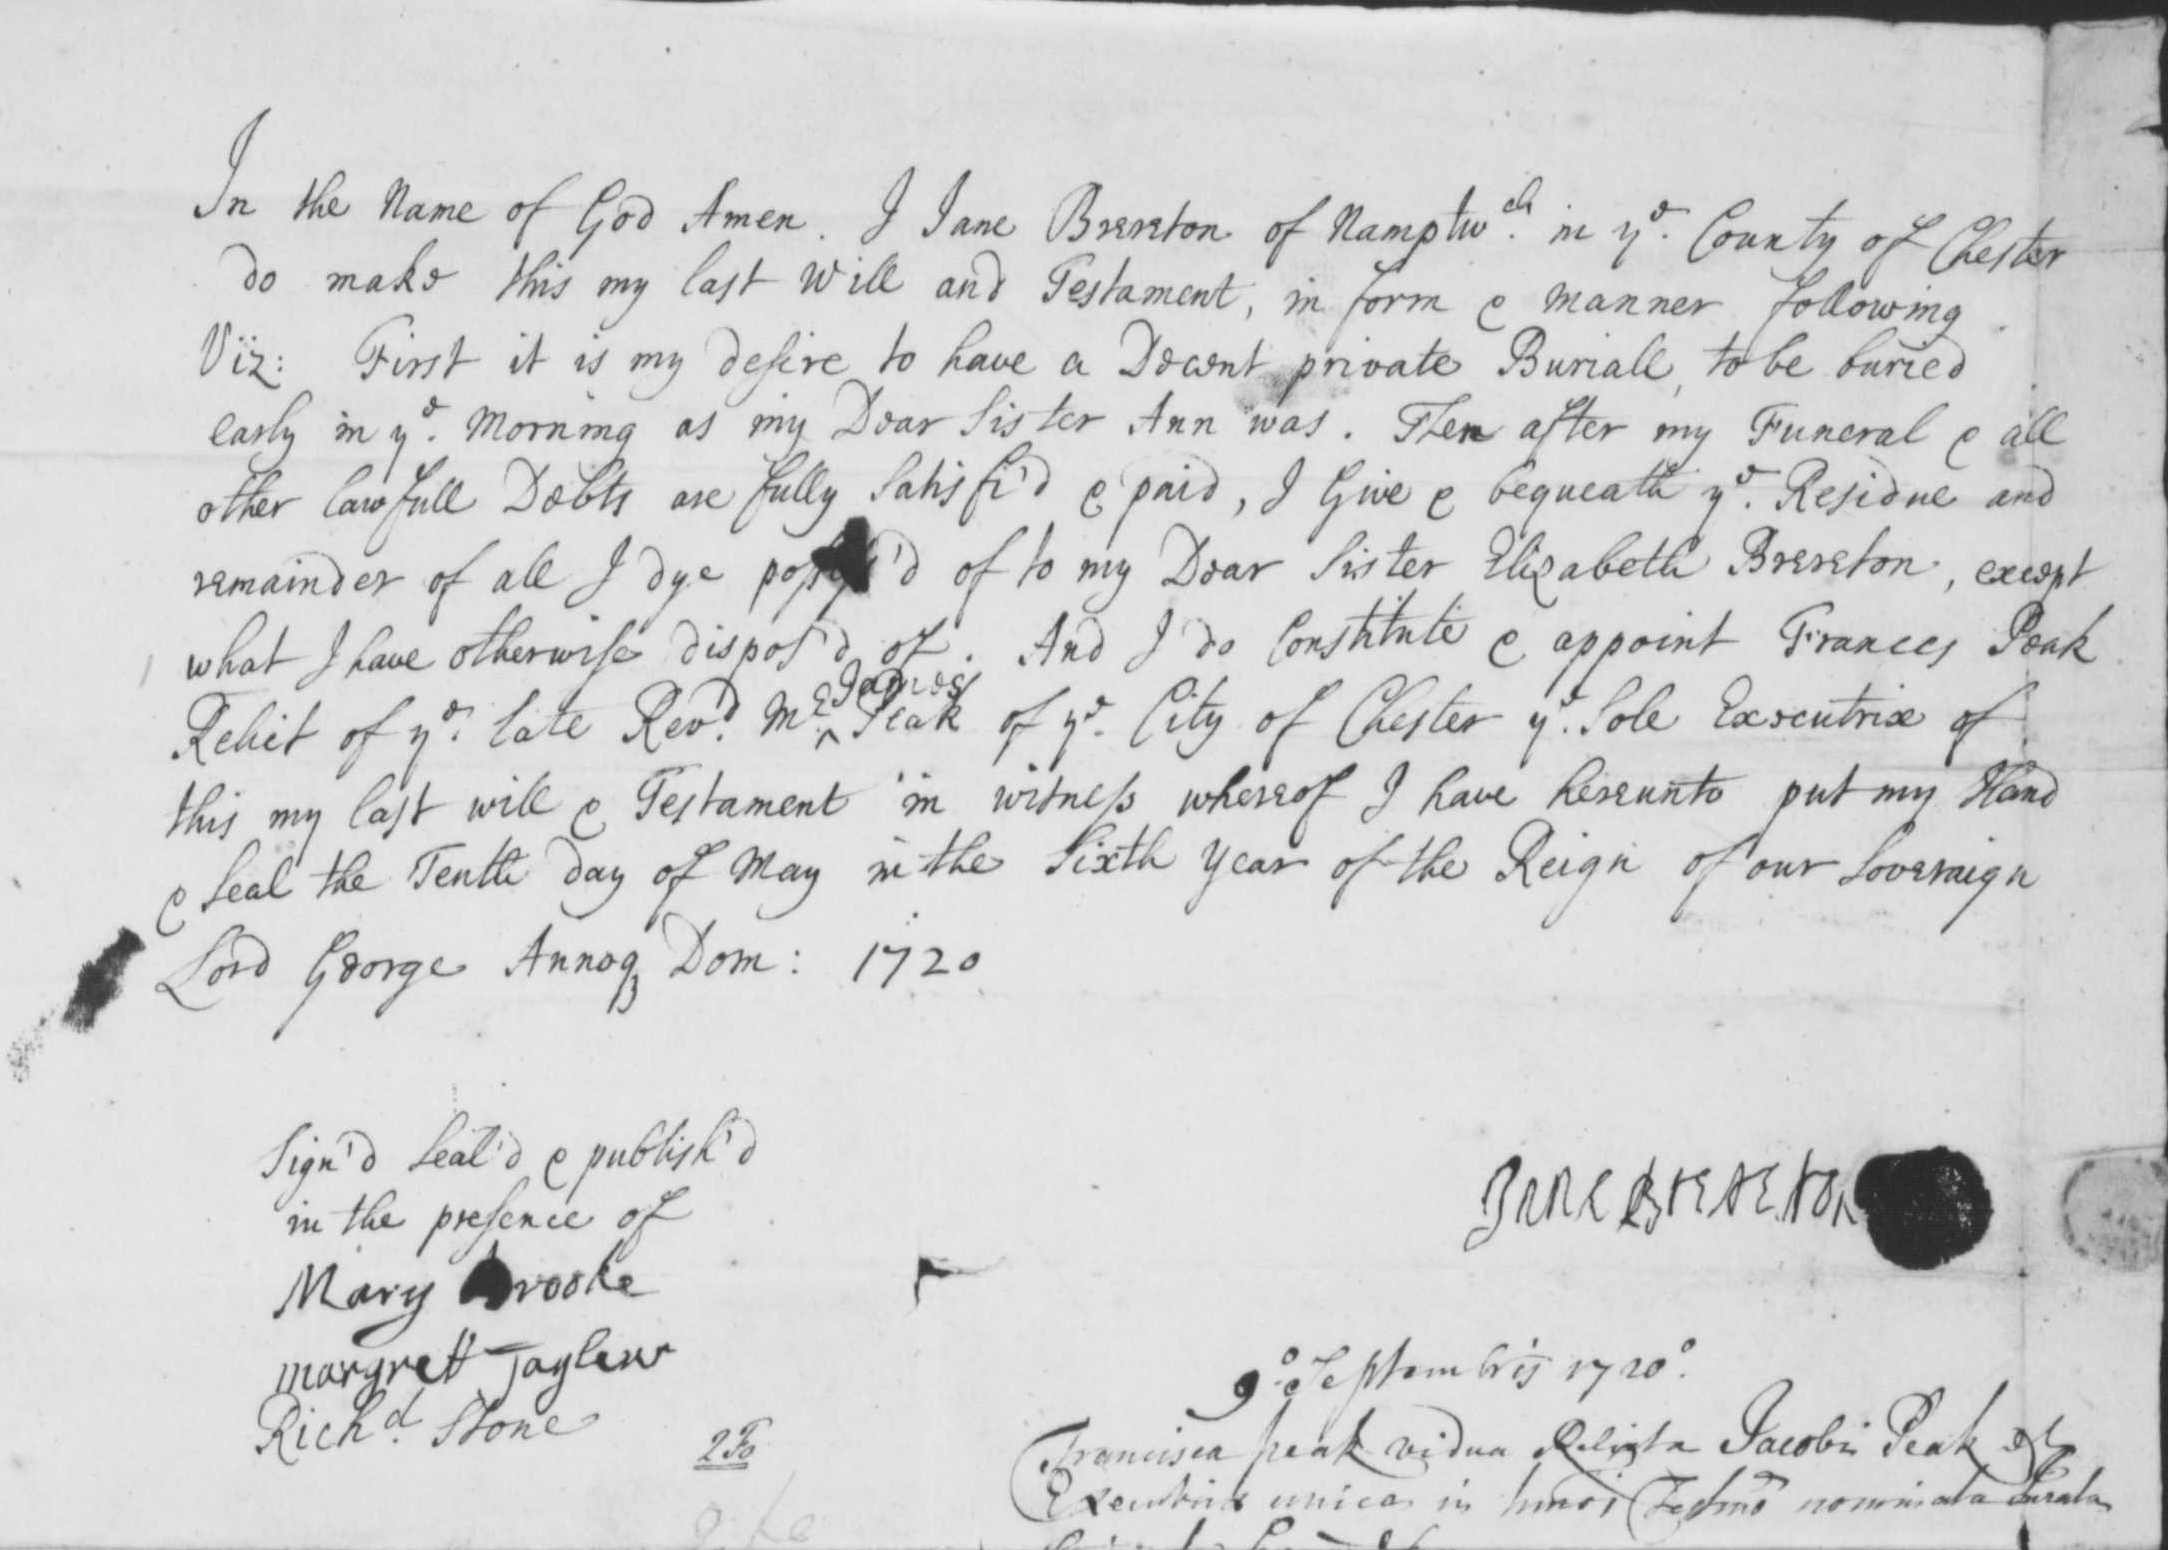 In the Name of God Amen. I Jane Brereton of Namptwch. in ye. County of Chester
do make this my last Will and Testament, in form & manner following
Viz: First it is my desire to have a Decent private Buriall, to be buried
early in ye. Morning as my Dear Sister Ann was. Then after my Funeral & all
other lawfull Debts are fully Satisfi'd & paid, I Give & bequeath ye. Residue and
remainder of all I dye possess'd of to my Dear Sister Elizabeth Brereton, except
what I have otherwise dispos'd of. And I do Constitute & appoint Frances Peak
Relict of ye. late Revd. Mr. ^James Peak of ye. City of Chester ye. Sole Executrix of
this my last will & Testament in witness whereof I have hereunto put my Hand
& Seal the Tenth day of May in the Sixth Year of the Reign of our Soveraign
Lord George Annoq Dom: 1720
Sign'd Seal'd & publish'd
in the presence of
Jane Brereton
Mary Brooke
margret Tayler
Richd. Stone
2 Fo
9o. Septembris 1720o.
Francisca peak vidua Relicta Jacobi Peak et
Executrix unica in hmoi Testmo nominata Jurata